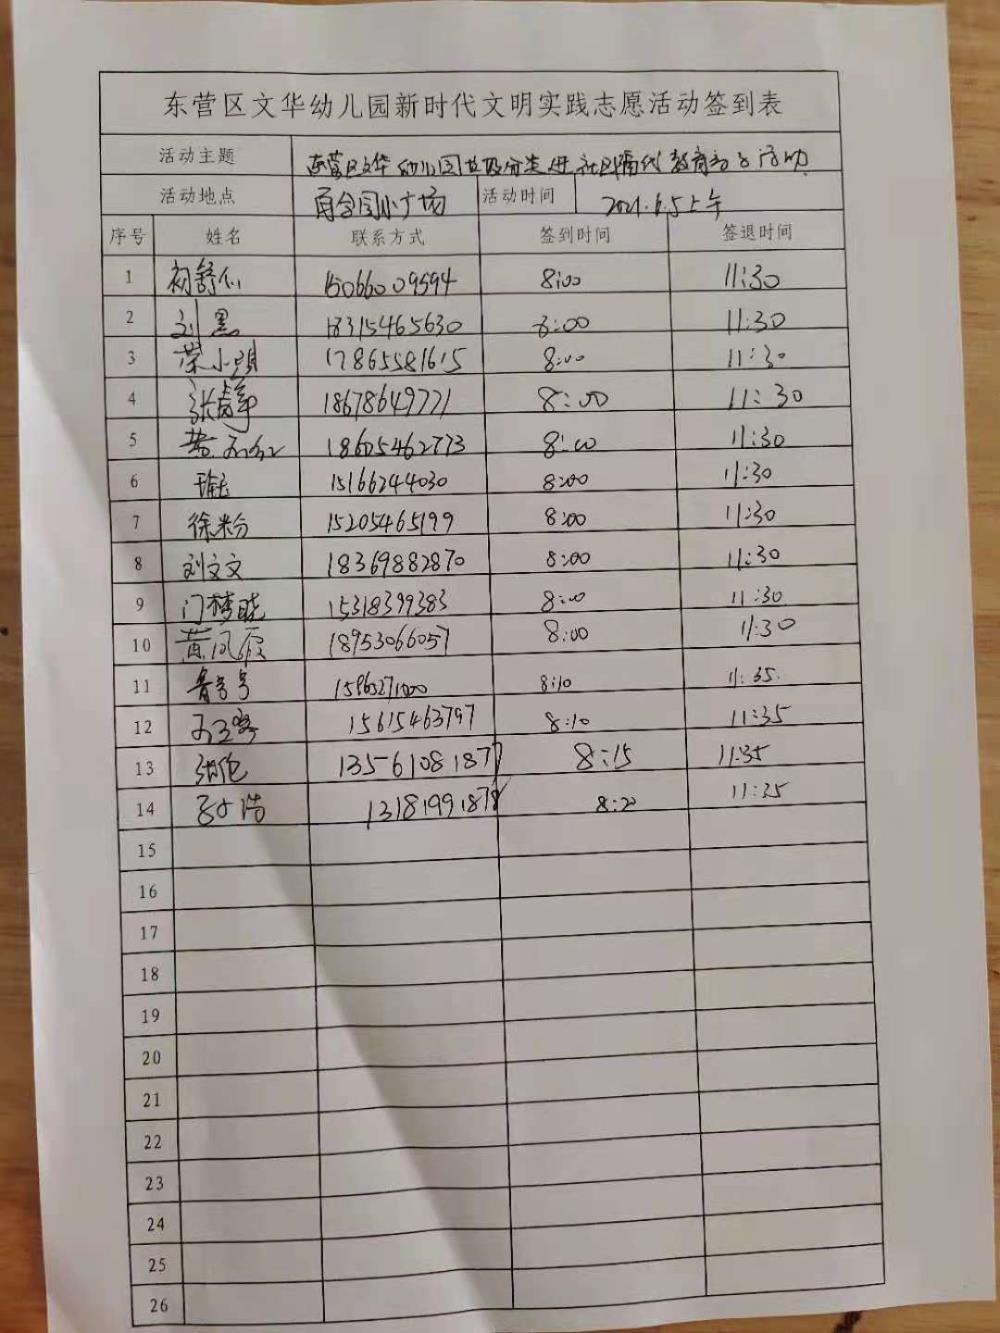 东营区文华幼儿园新时代文明实践志愿活动签到表
活动主题 东营区文华幼儿园垃圾分类进社区隔代教育 活动
活动地点 小广场 活动时间 2021.6.5上午
序号 姓名 联系方式 签到时间 签退时间
1 初舒 15066009594 8:00 11:30
2 刘 18315465630 8:00 11:30
3 荣小 17865581615 8:00 11:30
4 张 18678649771 8:00 11:30
5 18605462773 8:00 11:30
6 15166244030 8:00 11:30
7 徐粉 15205465199 8:00 11:30
8 刘文文 18369882870 8:00 11:30
9 门梦晓 15318399383 8:00 11:30
10 黄凤霞 18953066057 8:00 11:30
11 8:10 11:35
12 15615463797 8:10 11:35
13 张伦 13561081877 8:15 11:35
14 浩 13181991878 8:20 11:35
15
16
17
18
19
20
21
22
23
24
25
26